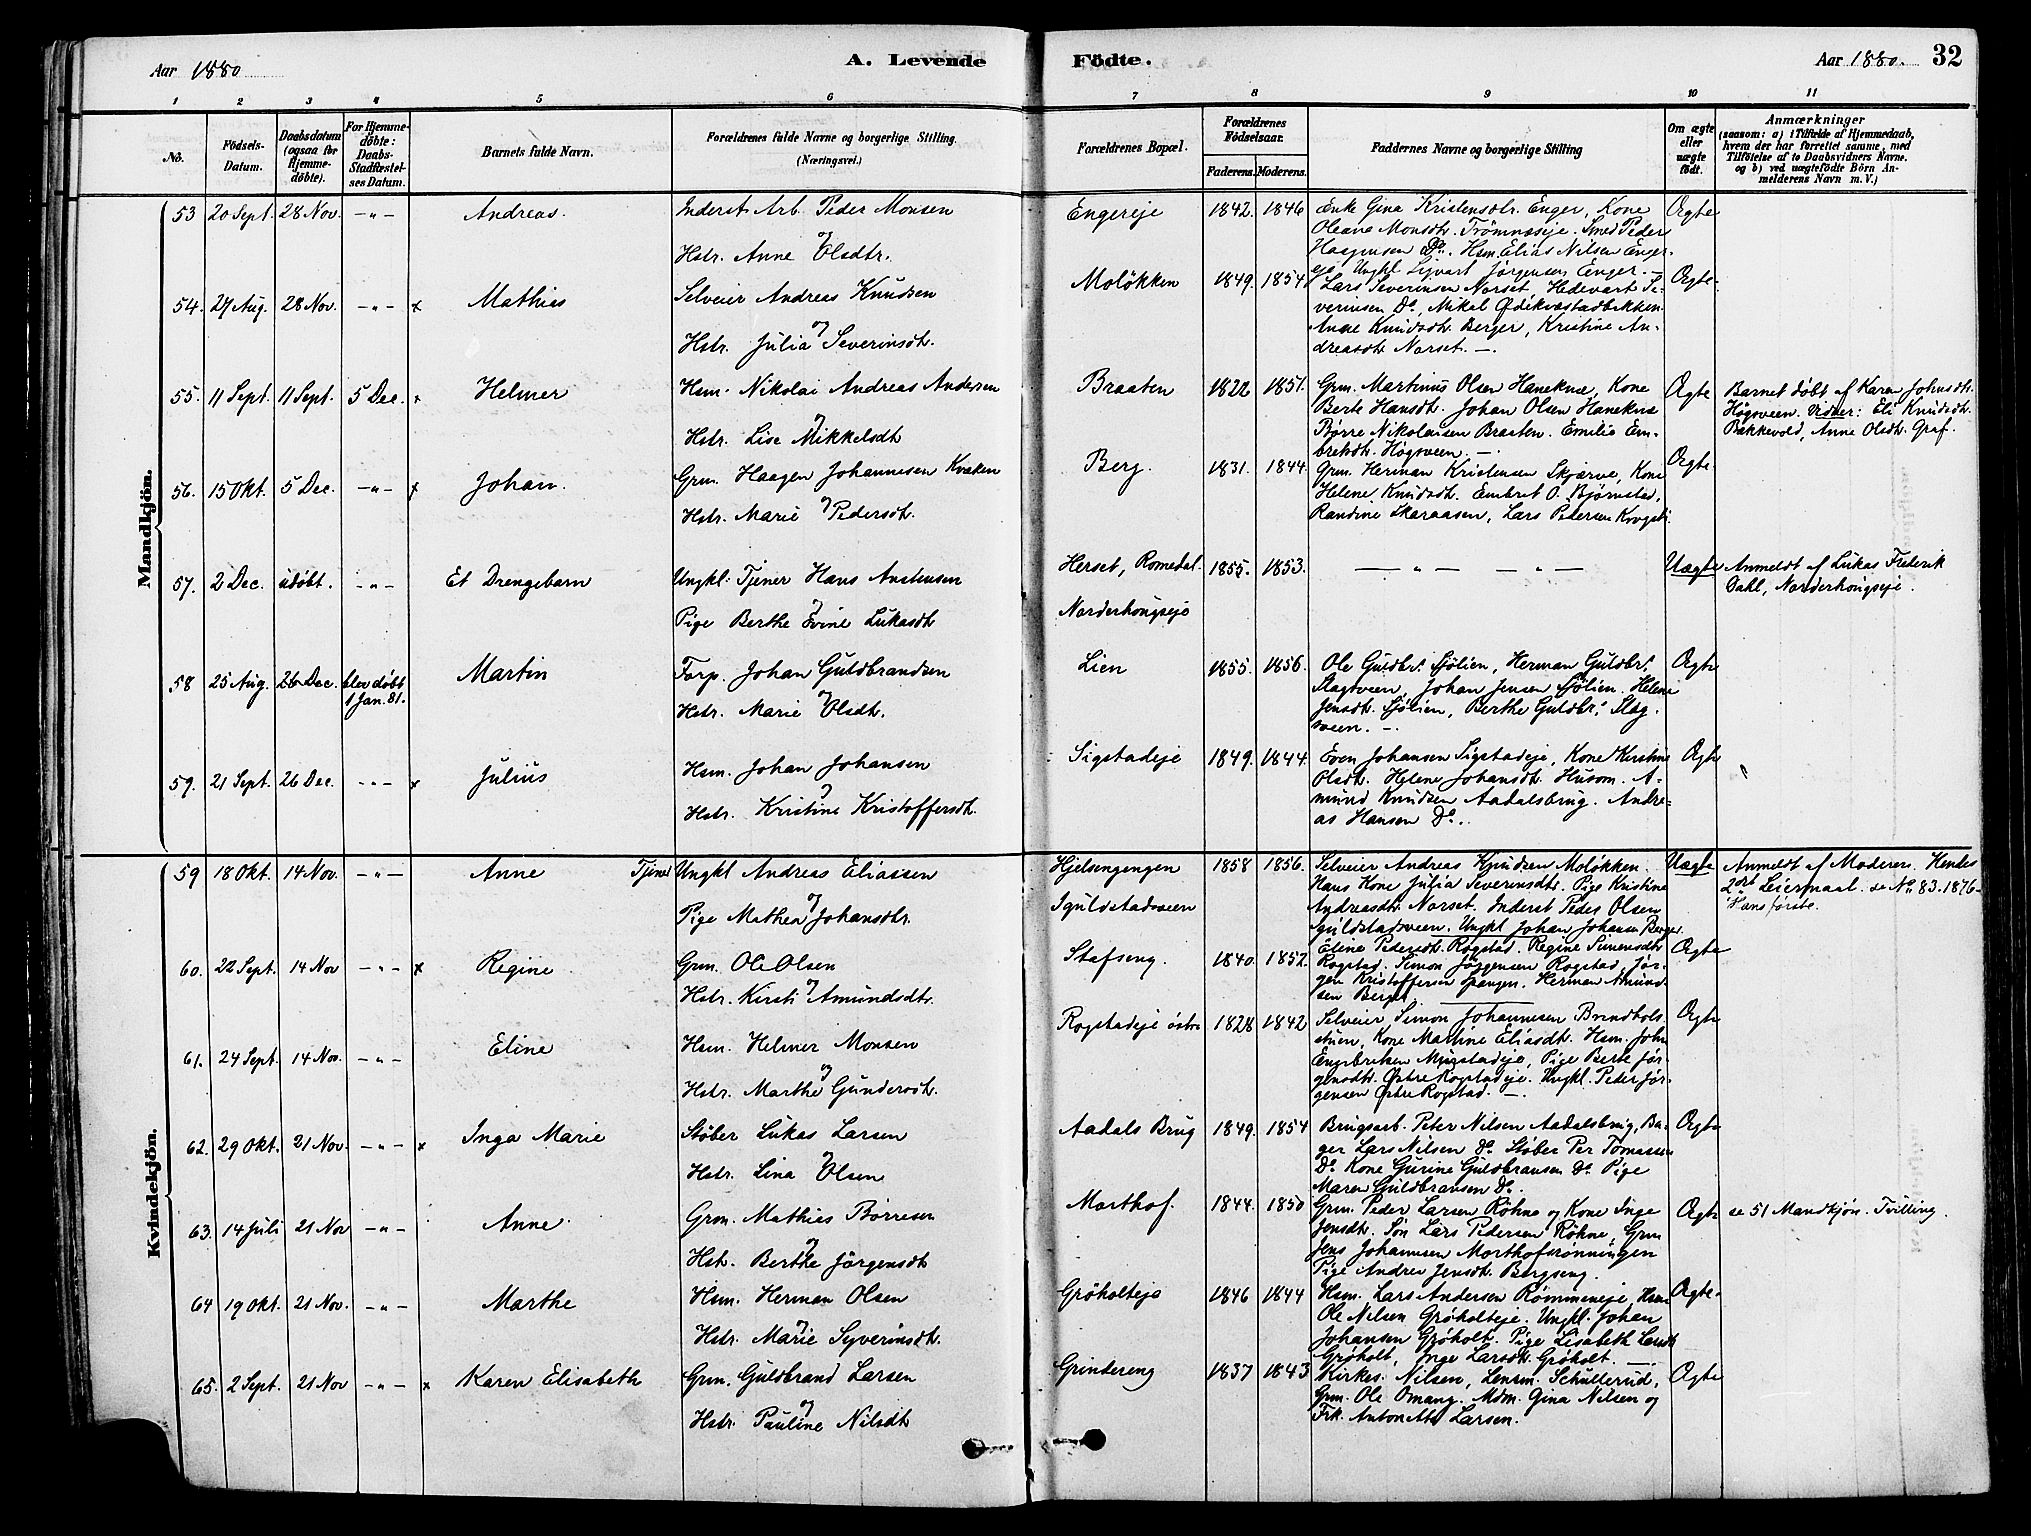 Aar 1880
A. Levende
Födte.
Aar 1880.
32
1 2 3 4 5 6 7 8 9 10 11
No.
Födsels-Datum.
Daabsdatum (ogsaa for Hjemme-døbte).
For Hjemme-døbte: Daabs-Stadfæstel-ses Datum.
Barnets fulde Navn.
Forældrenes fulde Navne og borgerlige Stilling.
(Næringsvei.)
Forældrenes Bopæl.
Forældrenes Födselsaar.
Faderens. Moderens.
Faddernes Navne og borgerlige Stilling
Om ægte eller uægte födt.
Anmærkninger
(saasom: a) i Tilfælde af Hjemmedaab,
hvem der har forrettet samme, med
Tilföielse af to Daabsvidners Navne.
og b) ved uægtefödte Börn An-
melderens Navn m. V.)
Mandkjön.
53 20 Sept. 28 Nov. -"- Andreas. Inderst Arb. Peder Monsen
og
Hstr. Anne Olsdtr.
Engereje 1842. 1846 Enke Gina Kristensdtr. Enger, Kone
Oleane Monsdtr. Trömnæseje. Smed Peder
Haagensen Do. Hsm. Elias Nilsen Enger-
eje Ungkl. Sigvart Jørgensen Enger. -
Ægte
54. 27 Aug. 28 Nov. -"- x Mathias Selveier Andreas Knudsen
og
Hstr. Julia Severinsdtr.
Moløkken 1849. 1854 Lars Severinsen Norset, Hedevart Se-
verinsen Do, Mikal Ødekvæstadbakken
Anne Knudsdtr. Berger, Kristine An-
dreasdtr. Norset. -
Ægte.
55. 11 Sept. 11 Sept. 5 Dec. x Helmer Hsm. Nikolai Andreas Andersen
og
Hstr. Lise Mikkelsdtr
Braaten 1822 1851. Grm. Martinus Olsen Haneknæ, Kone
Berte Hansdtr. Johan Olsen Haneknæ
Børre Nikolaisen Braaten. Emilie Em-
bretsdtr. Högsveen. -
Ægte Barnet døbt af Karen Johnsdtr.
Högsveen. Vidner: Eli Knudsdtr.
Bakkevold, Anne Olsdtr. Graf.
56. 15 Okt. 5 Dec. -"- x Johan. Grm. Haagen Johannesen Kvæken
og
Hstr. Marie Pedersdtr.
Berg. 1831. 1844. Grm. Herman Kristensen Skjærve, Kone
Helene Knudsdtr. Embret O. Bjørnstad,
Randine Skaraasen, Lars Pedersen
Ægte.
57. 2 Dec. udøbt. -"- Et Drengebarn Ungkl. Tjener Hans Anstensen
og
Pige Berthe Evine Lukasdtr
Herset, Romedal.
Norderhougseje
1855. 1853. - " - - " - Uægte Anmeldt af Lukas Frederik
Dahl, Norderhougseje.
58 25 Aug. 26 Dec. blev døbt
1 Jan. 81.
Martin Forp. Johan Guldbrandsen
og
Hstr. Marie Olsdtr.
Lien 1855. 1856. Ole Guldbr. Sjölien, Herman Guldbr.
Slagsveen, Johan Jensen Sjölien. Helene
Jensdtr. Sjölien, Berthe Guldbr. Slag-
sveen. -
Ægte
59. 21 Sept. 26 Dec. -"- x Julius Hsm. Johan Johansen
og
Hstr. Kristine Kristoffersdtr.
Sigstadeje 1849. 1844. Even Johansen Sigstadeje, Kone Kirstine
Olsdtr. Helene Johansdtr. Husom. A-
mund Knudsen Aadalsbrug. Andre-
as Hansen Do.
Ægte
Kvindekjön.
59 18 Okt. 14 Nov. -"- Anne Tjener Ungkl Andreas Eliasen
og
Pige Mathea Johansdtr.
Hjelsengengen
Iguldstadsveen
1858 1856. Selveier Andreas Knudsen Moløkken.
Hans Kone Julia Severinsdtr. Pige Kristine
Andreasdtr. Norset. Inderst Peder Olsen
Iguldstadsveen. Ungkl Johan Johansen Berger
Uægte Anmeldt af Moderen. Hendes
2det Leiermaal. se No. 83. 1876-
Hans første.
60. 22 Sept. 14 Nov -"- x Regine Grm. Ole Olsen
og
Hstr. Kirsti Amundsdtr.
Stafseng. 1840. 1852. Eline Pedersdtr. Rogstad. Regine Simensdtr.
Rogstad. Simon Jörgensen Rogstad, Jör-
gen Kristoffersen Spangen. Herman Amund-
sen Berget.
Ægte
61. 24 Sept. 14 Nov. -"- Eline Hsm. Helmer Monsen
og
Hstr. Marthe Gundersdtr.
Rogstadeje östre 1828 1842 Selveier Simon Johannesen Brendbols-
stuen, Kone Martine Eliasdtr. Hsm. John
Engebretsen Mugstadeje, Pige Berte Jör-
gensdtr. Östre Rogstadeje. Ungkl. Peder Jör-
gensen Östre Rogstad. -
Ægte
62. 29 Okt. 21 Nov. -"- x Inga Marie Støber Lukas Larsen
og
Hstr. Lina Olsen
Aadals Brug 1849. 1854 Brugsarb. Peter Nilsen Aadalsbrug, Ba-
ger Lars Nilsen Do. Støber Per Tomassen
Do. Kone Gurine Guldbransen Do. Pige
Maren Guldbransen Do.
Ægte
63. 14 Juli 21 Nov -"- Anne Grm. Mathias Börresen
og
Hstr. Berthe Jörgensdtr
Morthof. 1844. 1850 Grm. Peder Larsen Röhne og Kone Inge
Jensdtr. Søn Lars Pedersen Röhne, Grm
Jens Johannesen Morthofrönningen
Pige Andrea Jensdtr. Bergseng.
Ægte se 51 Mandkjön. Tvilling.
64 19 Okt. 21 Nov. -"- Marthe Hsm. Herman Olsen
og
Hstr. Marie Syverinsdtr.
Gröholteje 1846 1844 Hsm. Lars Andersen Römmeneje, Hsm
Ole Nilsen Gröholteje. Ungkl. Johan
Johansen Gröholt. Pige Lisabeth Larsdtr
Gröholt, Inge Larsdtr. Gröholt. -
Ægte.
65. 2 Sept. 21 Nov -"- x Karen Elisabeth Grm. Guldbrand Larsen
og
Hstr. Pauline Nilsdtr
Grindereng 1837 1843 Kirkes. Nilsen, Lensm. Schullerud,
Grm. Ole Omang. Mdm. Gina Nilsen og
Frk. Antonette Larsen.
Ægte